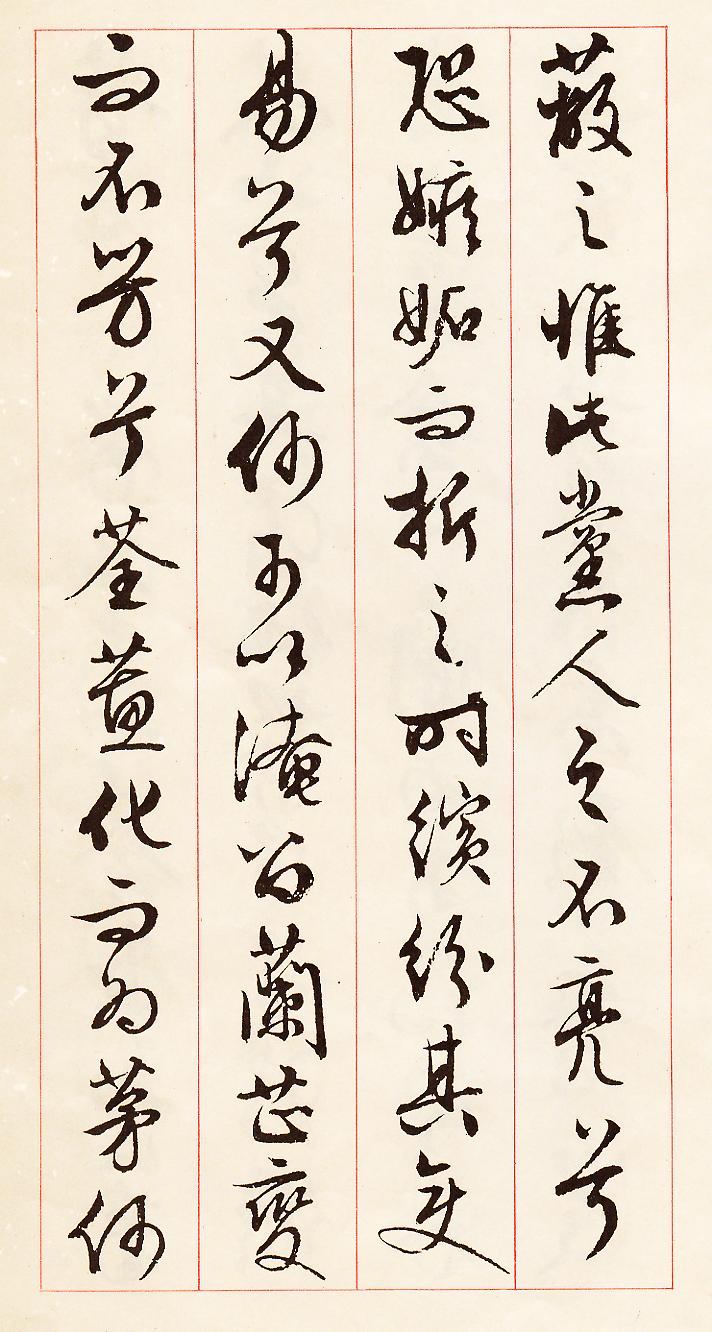 蔽之惟此黨人之不亮兮
恐嫉妬而折之時繽紛其変
易兮又何可以淹留蘭芷變
而不芳兮荃蕙化而為茅何